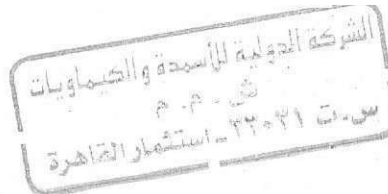 الشركة الدولية للأسمدة والكيماويات
ش . م . م
س.ت ٢٢٠٢١ - استثمار القاهرة